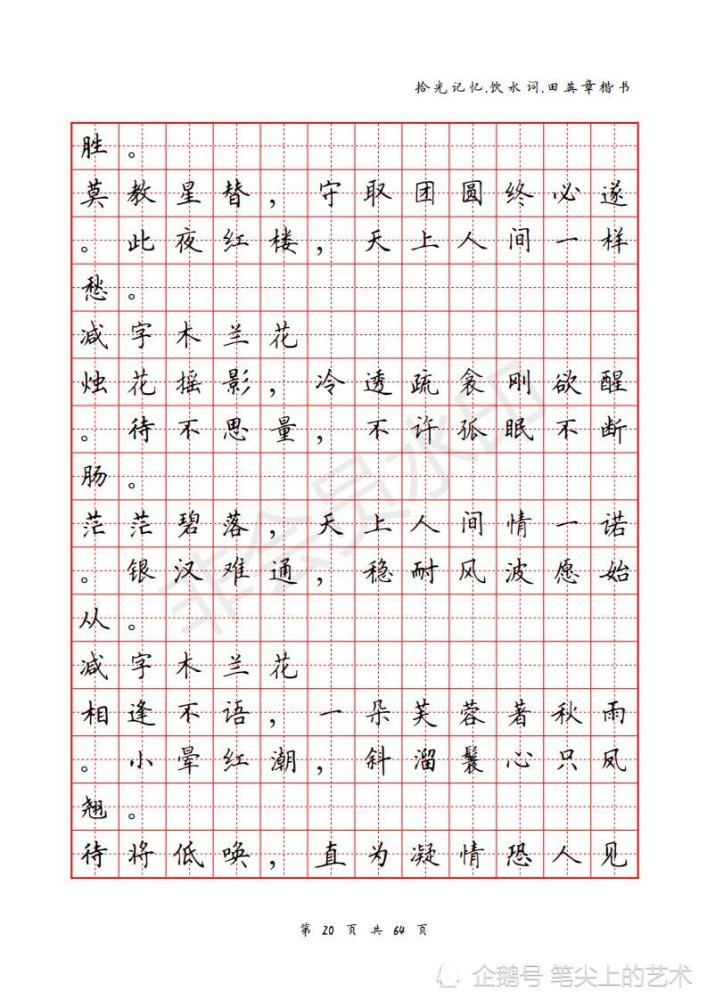 拾光记忆.饮水词.田英章楷书
胜。
莫教星替，守取团圆终必遂
。此夜红楼，天上人间一样
愁。
减字木兰花
烛花摇影，冷透疏衾刚欲醒
。待不思量，不许孤眠不断
肠。
茫茫碧落，天上人间情一诺
。银汉难通，稳耐风波愿始
从。
减字木兰花
相逢不语，一朵芙蓉著秋雨
。小晕红潮，斜溜鬟心只凤
翘。
待将低唤，直为凝情恐人见
非会员水印
第 20 页 共 64 页
企鹅号 笔尖上的艺术